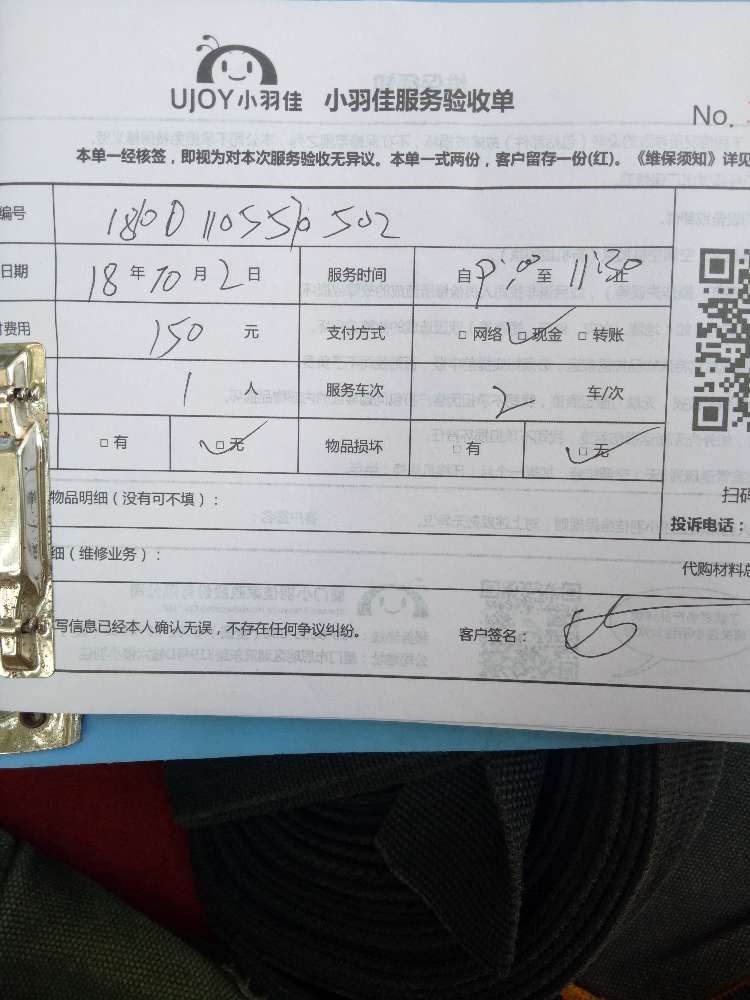 UJOY小羽佳 小羽佳服务验收单
No.
本单一经核签，即视为对本次服务验收无异议。本单一式两份，客户留存一份(红)。《维保须知》详见
编号 180D110550502
日期 18年10月2日 服务时间 自9:00至11:30止
费用 150元 支付方式 □网络 □现金 □转账
1人 服务车次 2车/次
□有 □无 物品损坏 □有 □无
物品明细（没有可不填）：
扫码
投诉电话：
细（维修业务）：
代购材料总
写信息已经本人确认无误，不存在任何争议纠纷。 客户签名：